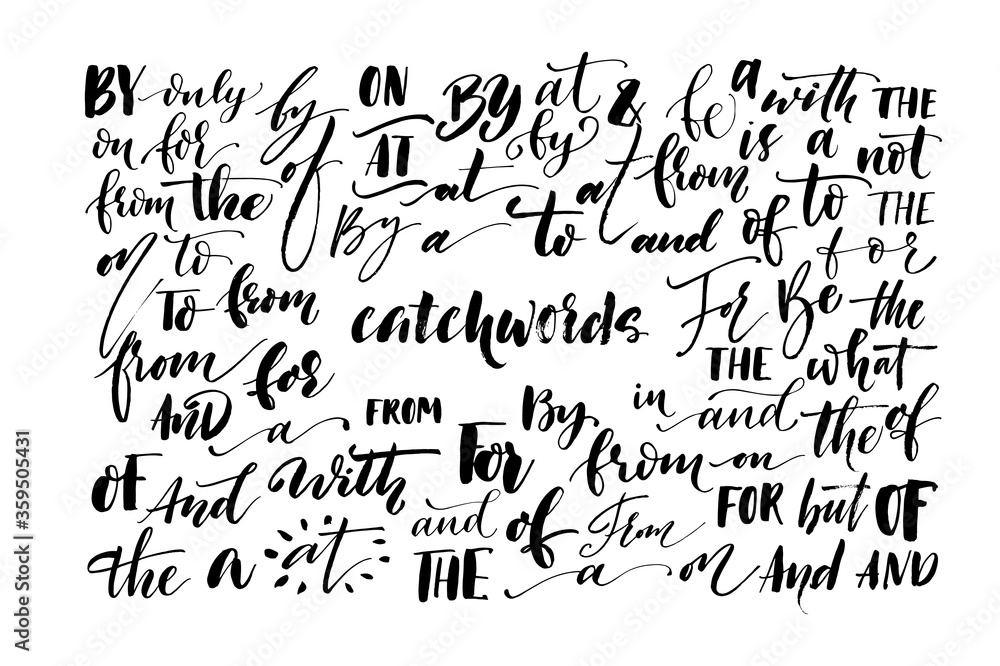 BY only by ON BY at & be a with THE
on for of AT by at from is a not
from the at to and of to THE
on to By a for
To from catchwords For Be the
from for THE what
AND a FROM By in and the of
OF And With For from on
and of From FOR but OF
the a at THE a on And AND
Adobe Stock | #359505431